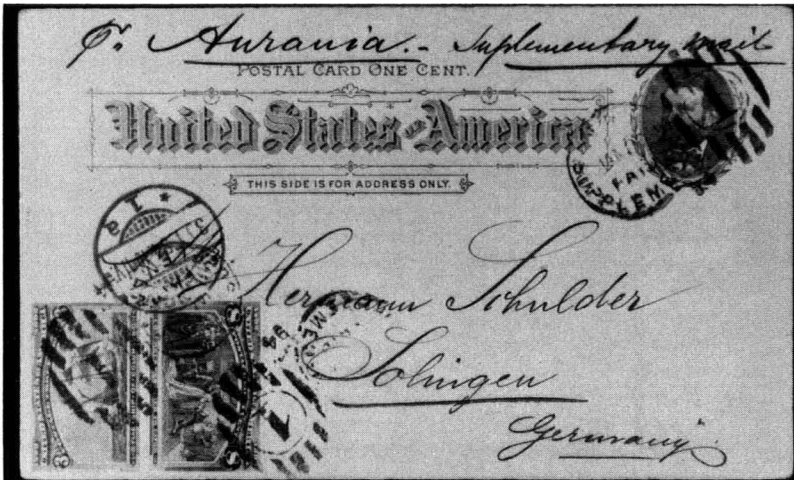 Pr. Aurania. - Suplementary mail
POSTAL CARD ONE CENT.
United States of America
THIS SIDE IS FOR ADDRESS ONLY.
PAID
SUPPLEM
1 a
Hermann Schulder
94
Solingen
1
Germany